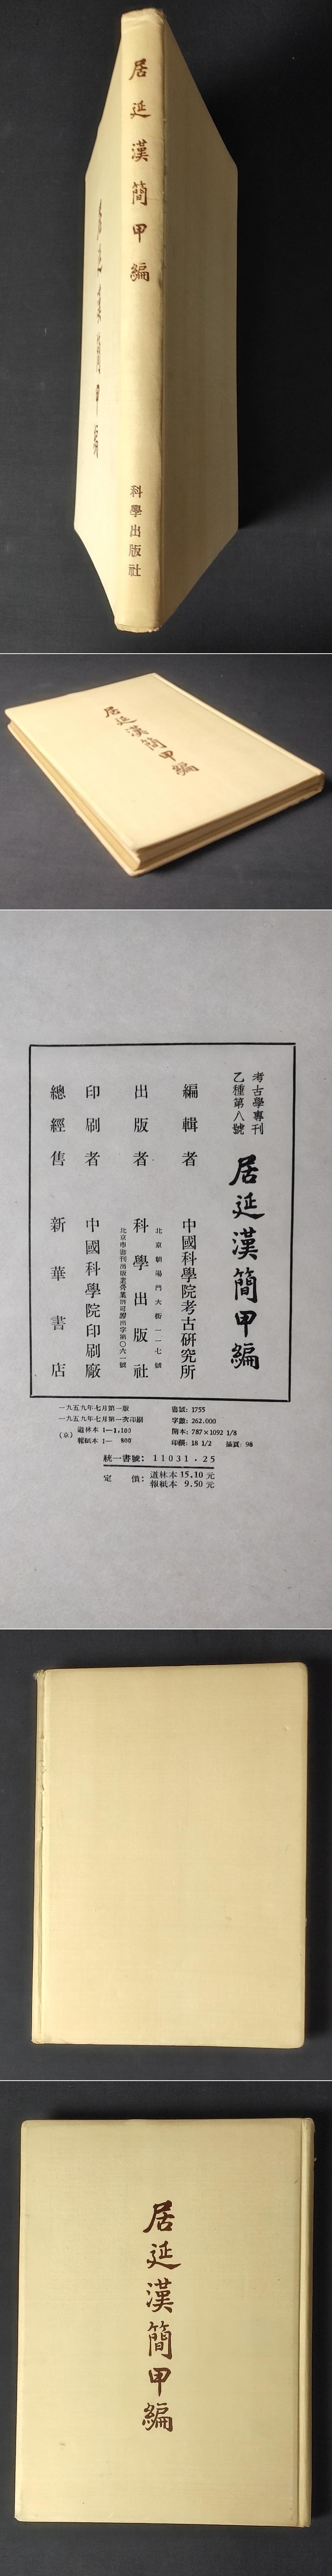 居延漢簡甲編
科學出版社
居延漢簡甲編
居延漢簡甲編
考古學專刊
乙種第八號
居延漢簡甲編
編輯者 中國科學院考古研究所
出版者 科學出版社
北京朝陽門大街一一七號
北京市書刊出版業營業許可證出字第〇六一號
印刷者 中國科學院印刷廠
總經售 新華書店
一九五九年七月第一版
一九五九年七月第一次印刷
(京) 道林本 1—1,100
報紙本 1— 800
書號: 1755
字數: 262.000
開本: 787×1092 1/8
印張: 18 1/2 插頁: 98
統一書號: 11031 · 25
定 價: 道林本 15.10 元
報紙本 9.50 元
居延漢簡甲編